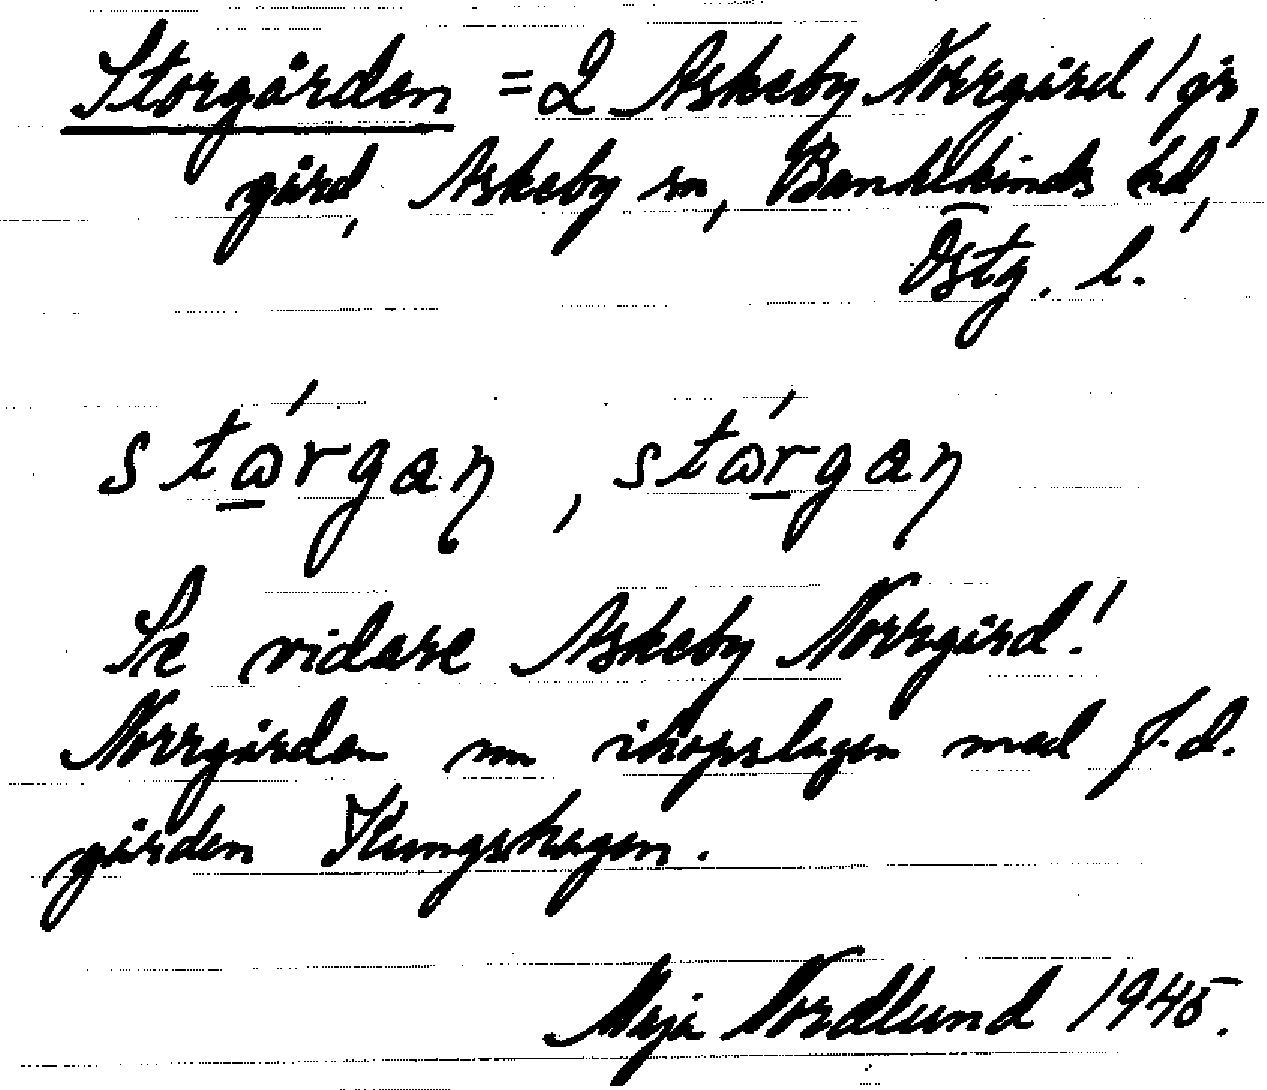 Storgården = 2 Askeby Norrgård /gr,
gård, Askeby sn, Bankekinds hd,
Östg. l.
stώ̲rgaŋ, stώr̲gaŋ
Se vidare Askeby Norrgård!
Norrgården nu ihopslagen med f.d.
gården Kungshagen.
Maja Nordlund 1945.